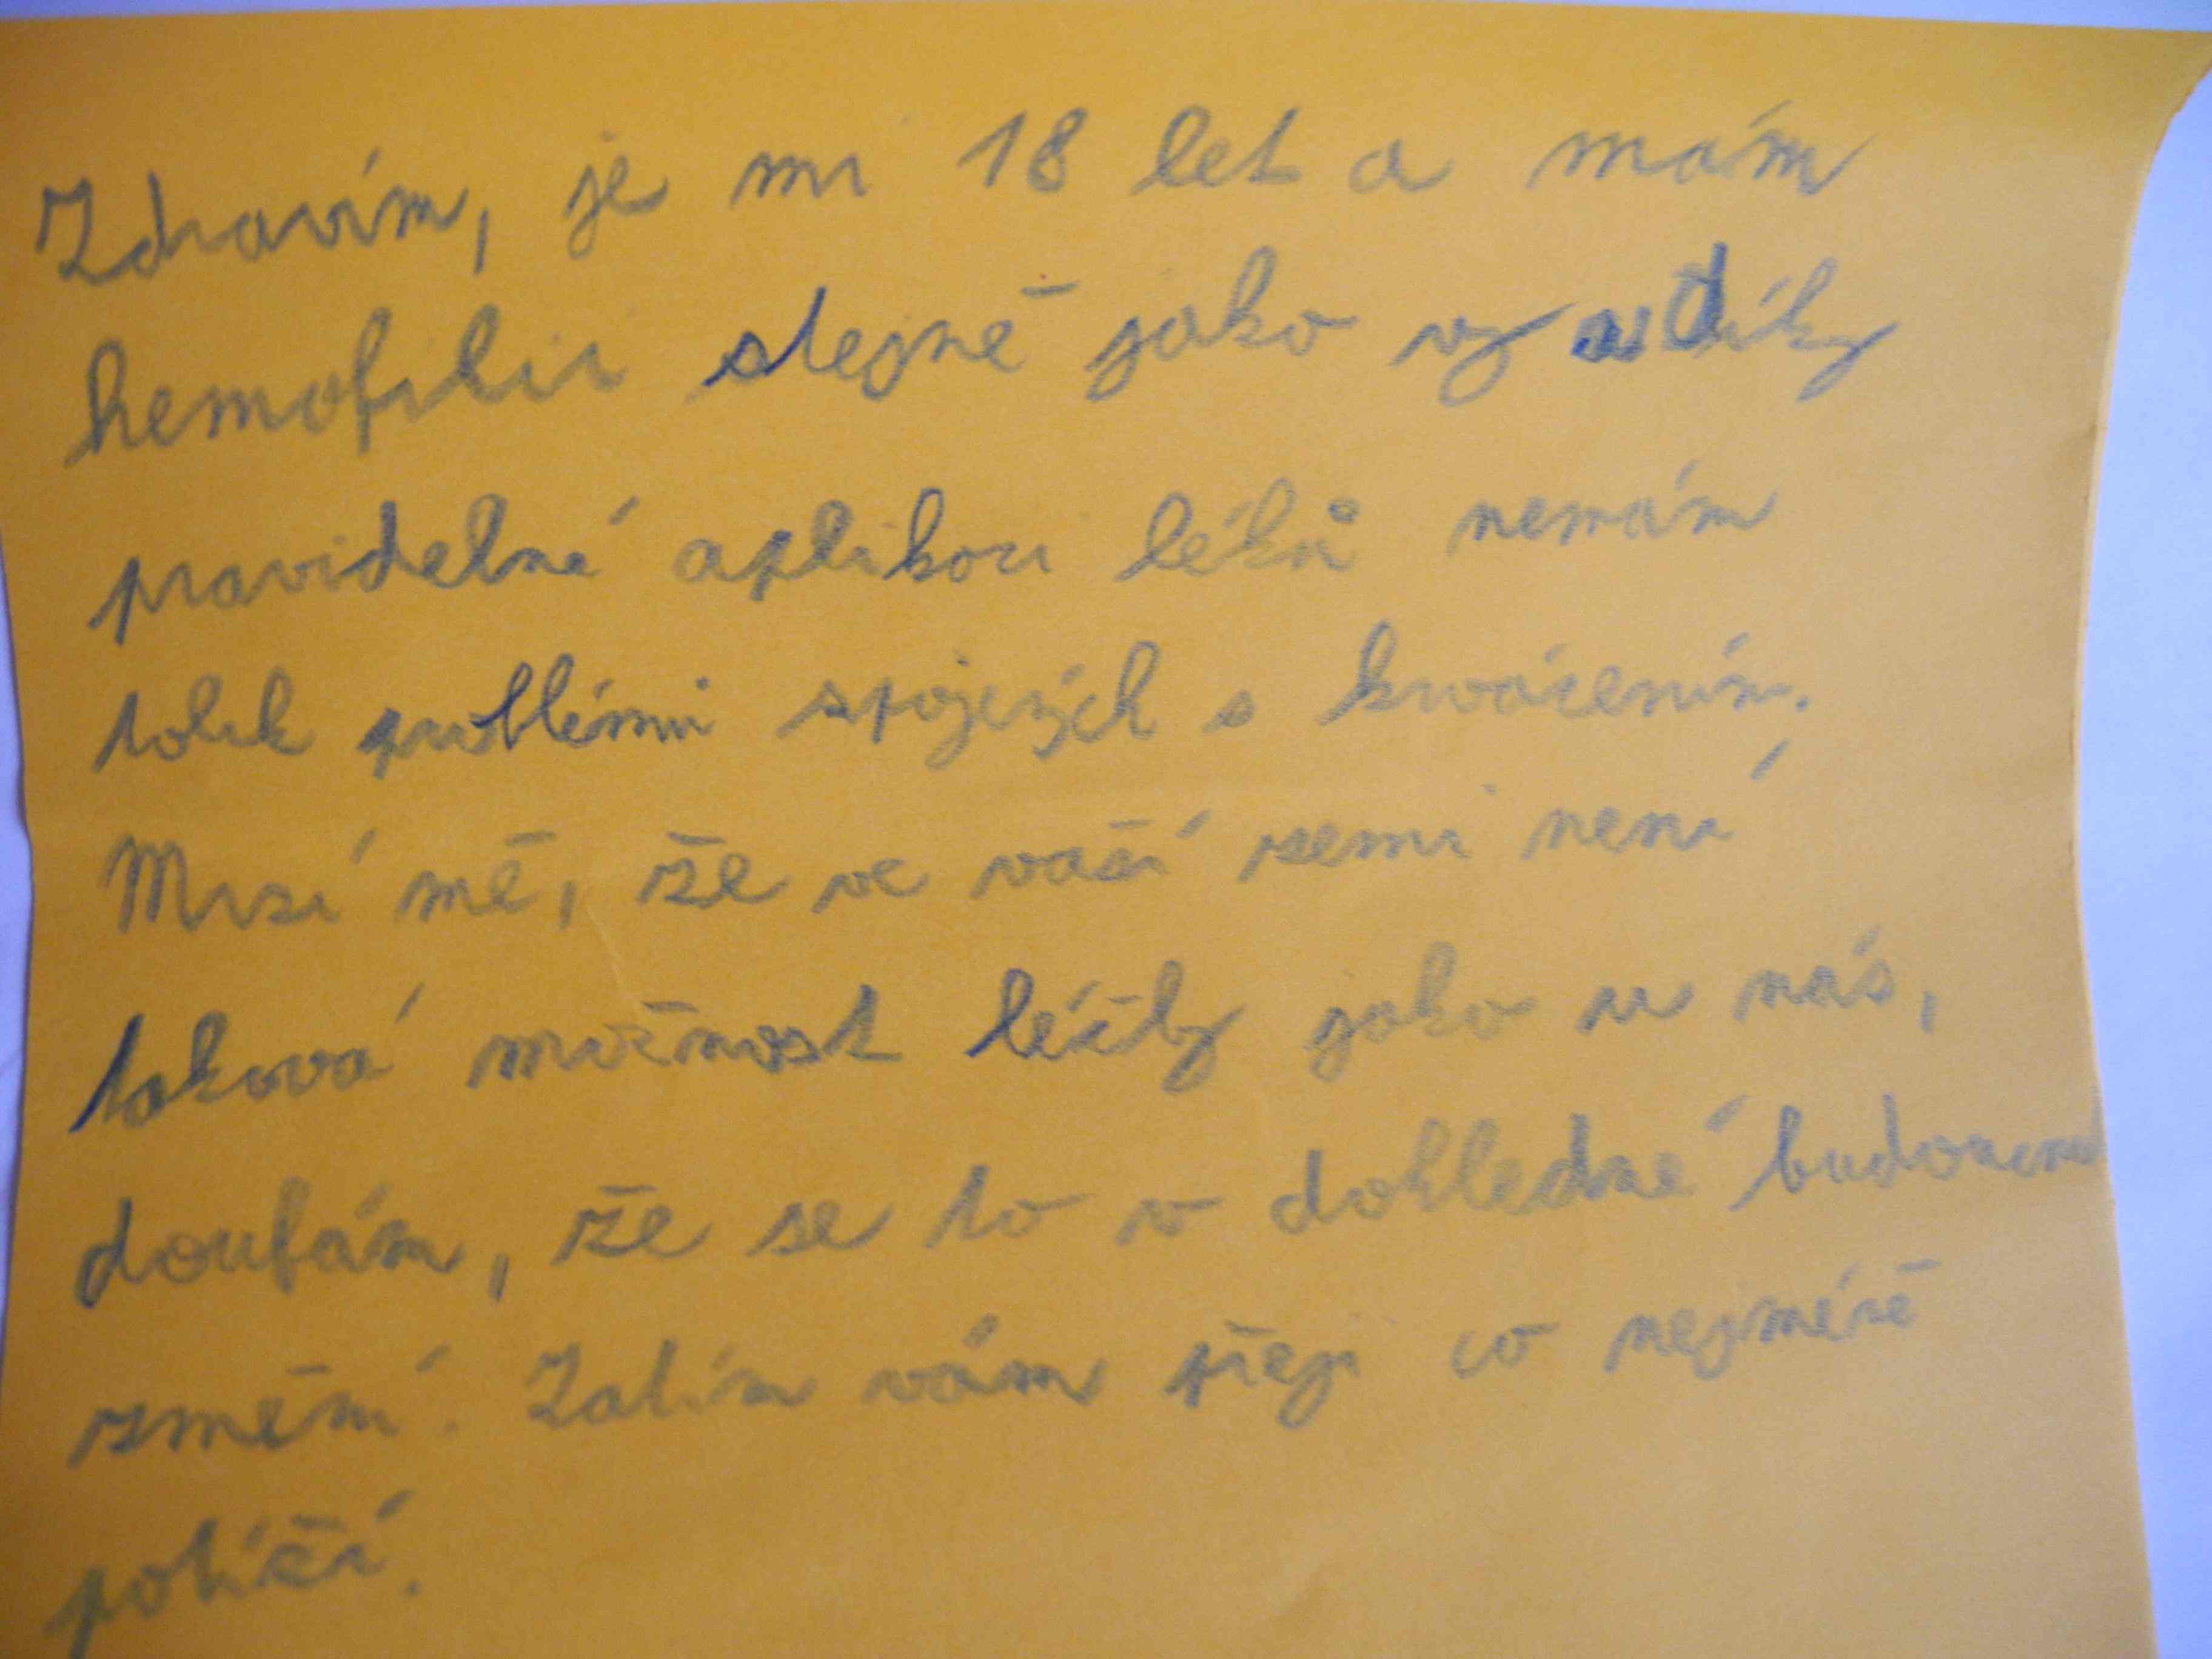 Zdravím, je mi 18 let a mám
hemofilii stejně jako vy a díky
pravidelné aplikaci léků nemám
tolik problémů spojených s krvácením.
Mrzí mě, že ve vaší zemi není
taková možnost léčby jako u nás,
doufám, že se to v dohledné budoucnu
změní. Zatím vám přeji co nejméně
potíží.